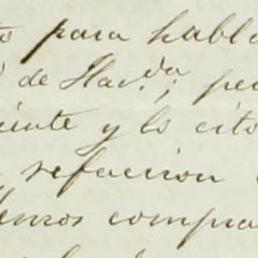 para habl
de Hac.da; pe
iente y lo cito
refaccion
lemos compra